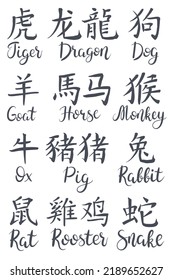 虎 龙龍 狗
Tiger Dragon Dog
羊 馬马 猴
Goat Horse Monkey
牛 豬猪 兔
Ox Pig Rabbit
鼠 雞鸡 蛇
Rat Rooster Snake
shutterstock.com · 2189652627